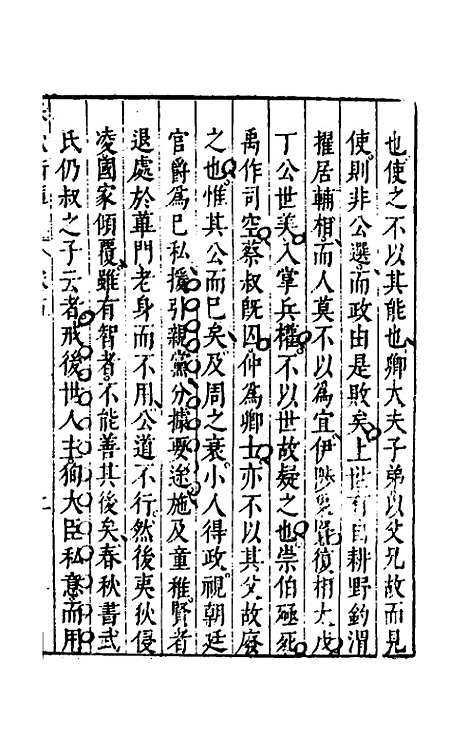 也使之不以其能也卿大夫子弟以父兄故而見
使則非公選而政由是敗矣上世有自耕野釣渭
擢居輔相而人莫不以為宜伊陟象賢復相大戊
丁公世美入掌兵權不以世故疑之也崇伯殛死
禹作司空蔡叔旣囚仲為卿士亦不以其父故廢
之也惟其公而已矣及周之衰小人得政視朝廷
官爵為已私援引親黨分據要途施及童稚賢者
退處於蓽門老身而不用公道不行然後夷狄侵
凌國家傾覆雖有智者不能善其後矣春秋書武
氏仍叔之子云者戒後世人主狥大臣私意而用